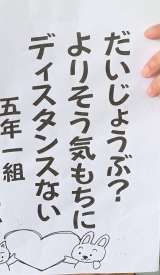 だいじょうぶ？
よりそう気もちに
ディスタンスない
五年一組